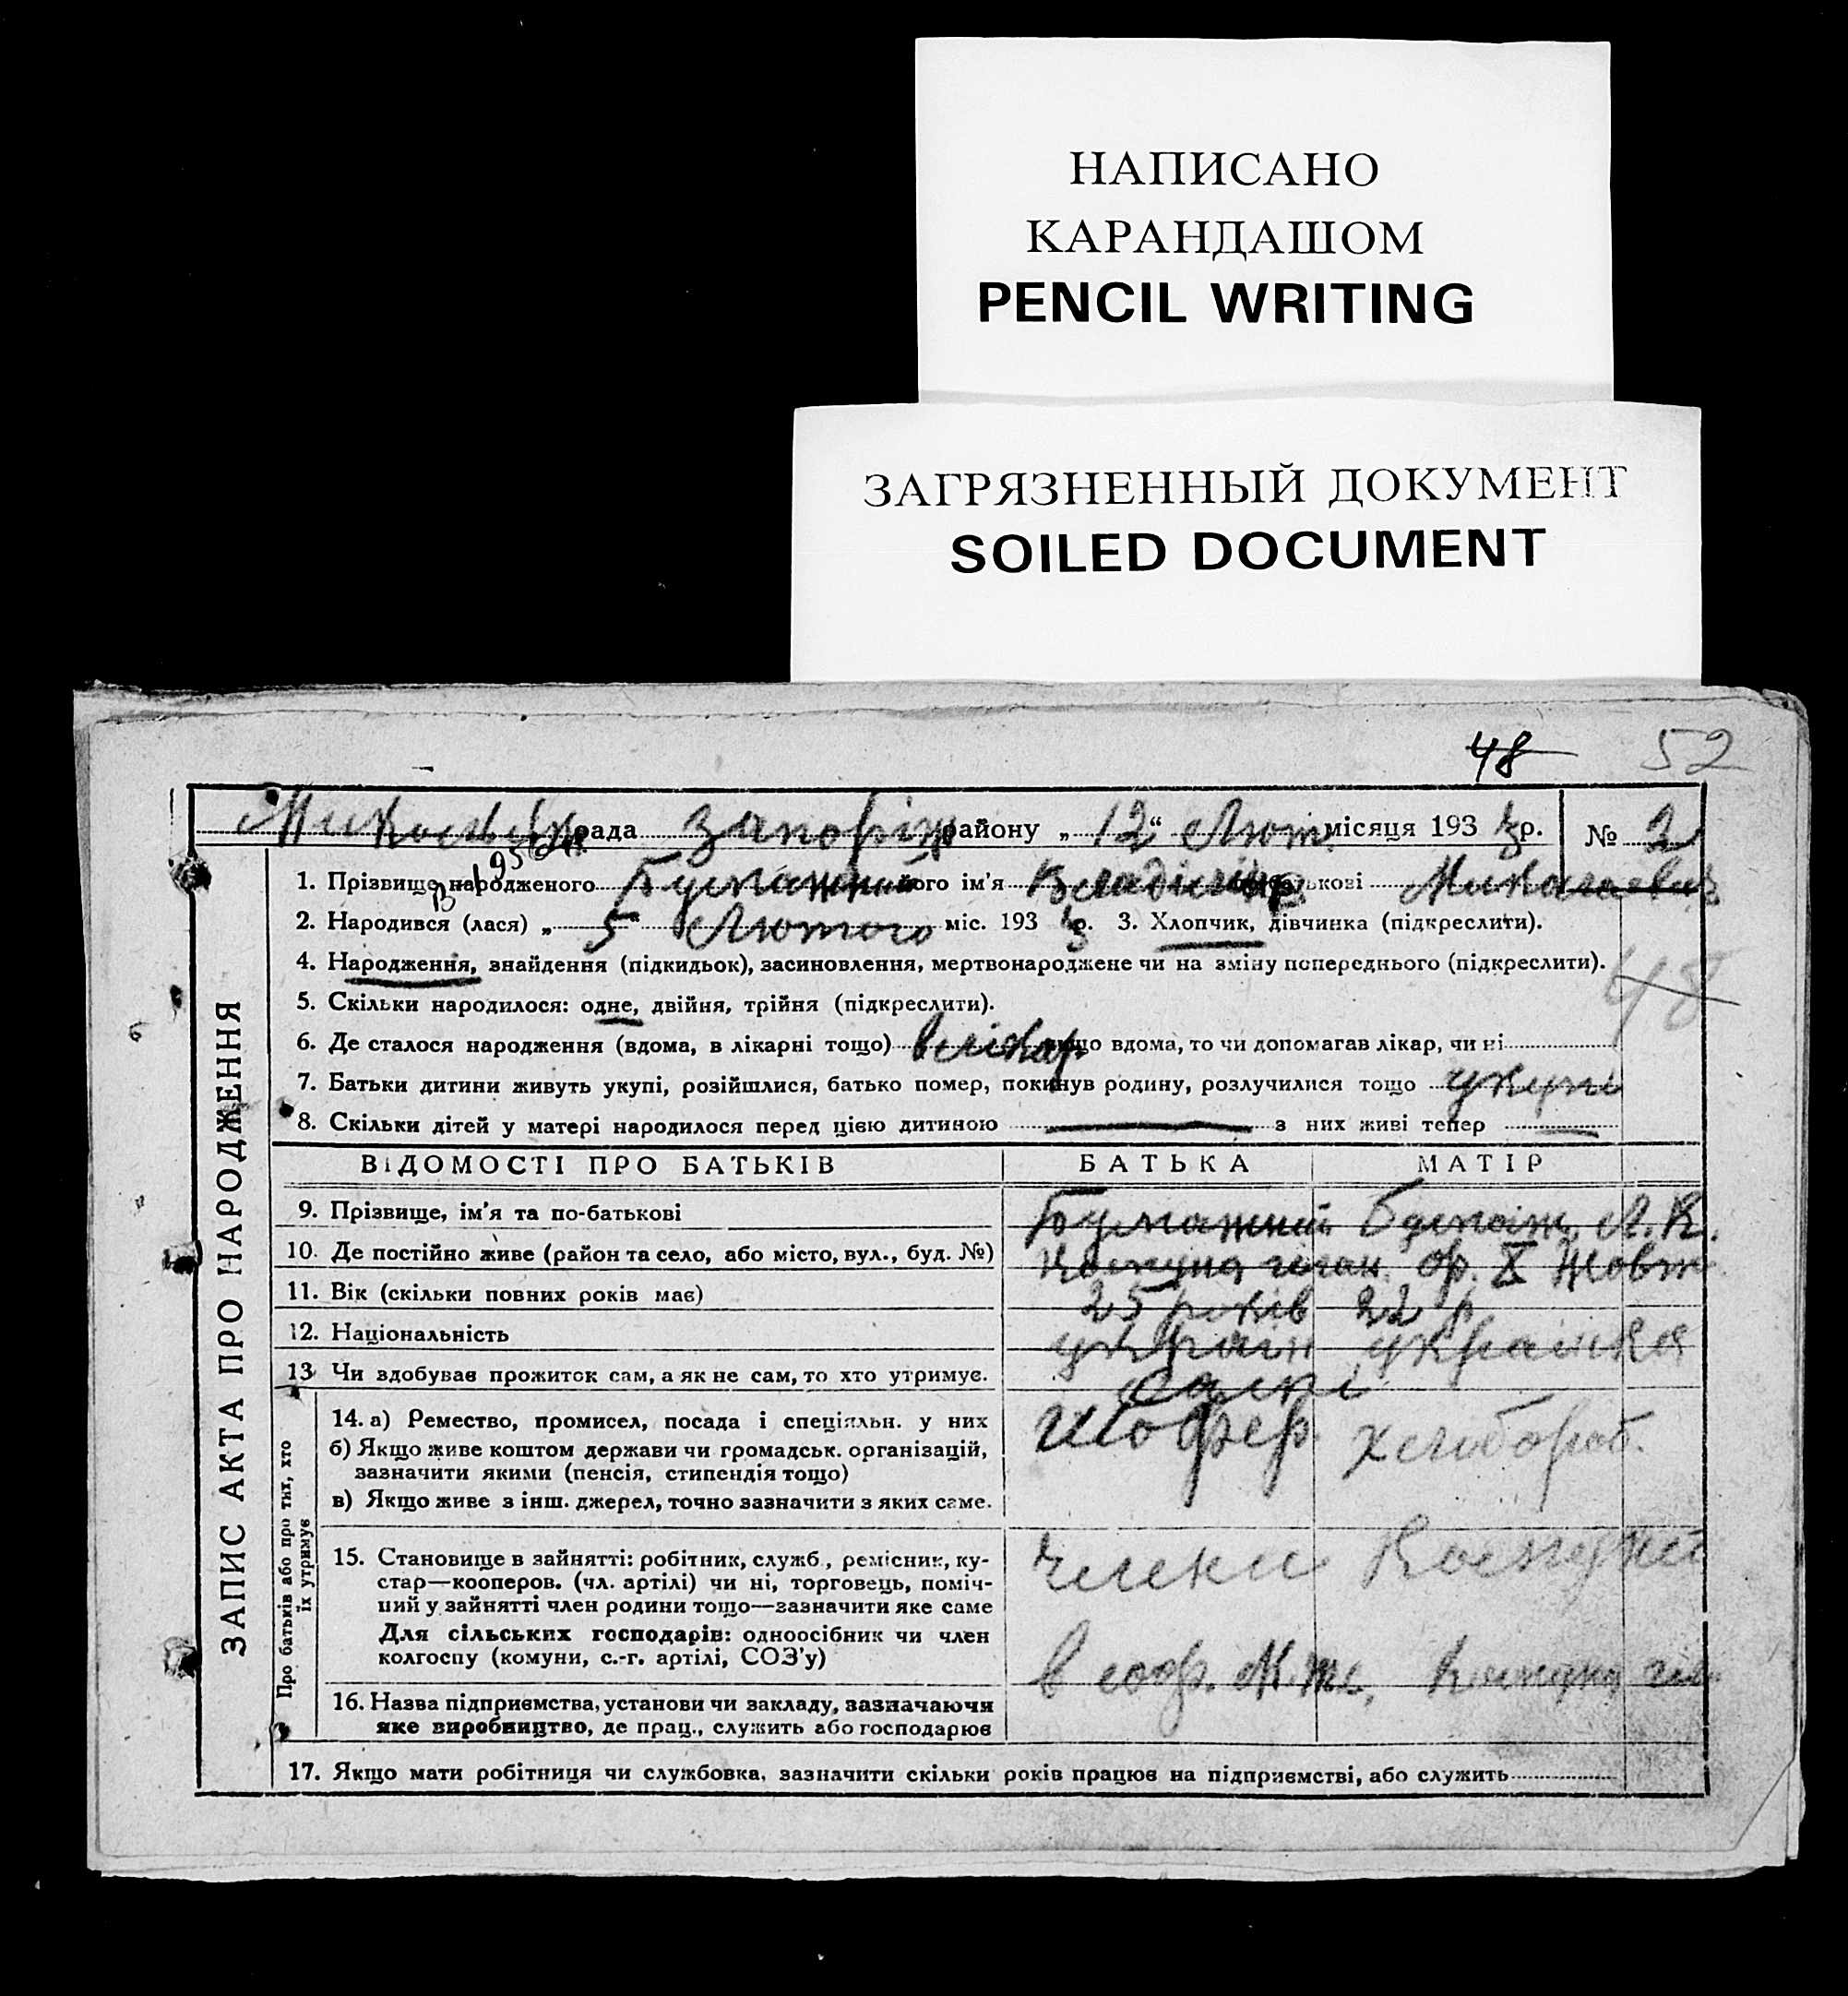 НАПИСАНО
КАРАНДАШОМ
PENCIL WRITING
ЗАГРЯЗНЕННЫЙ ДОКУМЕНТ
SOILED DOCUMENT
48 52
рада Запоріж району „12“ Лют. місяця 193 3 р. № 2
1. Прізвище народженого Бумажний його ім'я Владімір по-батькові Миколаевич
2. Народився (лася) „5“ Лютого міс. 193 3 р. 3. Хлопчик, дівчинка (підкреслити).
4. Народження, знайдення (підкидьок), засиновлення, мертвонароджене чи на зміну попереднього (підкреслити).
48
5. Скільки народилося: одне, двійня, трійня (підкреслити).
6. Де сталося народження (вдома, в лікарні тощо) в лікар якщо вдома, то чи допомагав лікар, чи ні
7. Батьки дитини живуть укупі, розійшлися, батько помер, покинув родину, розлучилися тощо укупі
8. Скільки дітей у матері народилося перед цією дитиною з них живі тепер
ВІДОМОСТІ ПРО БАТЬКІВ БАТЬКА МАТІР
9. Прізвище, ім'я та по-батькові Бумажний Бумаж. Л. К.
10. Де постійно живе (район та село, або місто, вул., буд. №) Комуна ор. X Жовт
11. Вік (скільки повних років має) 25 років 22 р.
12. Національність україн українка
13 Чи здобував прожиток сам, а як не сам, то хто утримує. самі
14. а) Ремество, промисел, посада і спеціяльн. у них шофер. хлібороб.
б) Якщо живе коштом держави чи громадськ. організацій,
зазначити якими (пенсія, стипендія тощо)
в) Якщо живе з інш. джерел, точно зазначити з яких саме.
15. Становище в зайнятті: робітник, служб., ремісник, ку-
стар—кооперов. (чл. артілі) чи ні, торговець, поміч-
ний у зайнятті член родини тощо—зазначити яке саме
члени Комуни
Для сільських господарів: одноосібник чи член
колгоспу (комуни, с.-г. артілі, СОЗ'у)
16. Назва підприємства, установи чи закладу, зазначаючи
яке виробництво, де прац., служить або господарює
в Комуна
17. Якщо мати робітниця чи службовка, зазначити скільки років працює на підприємстві, або служить
ЗАПИС АКТА ПРО НАРОДЖЕННЯ
Про батьків або про тих, хто
їх утримує